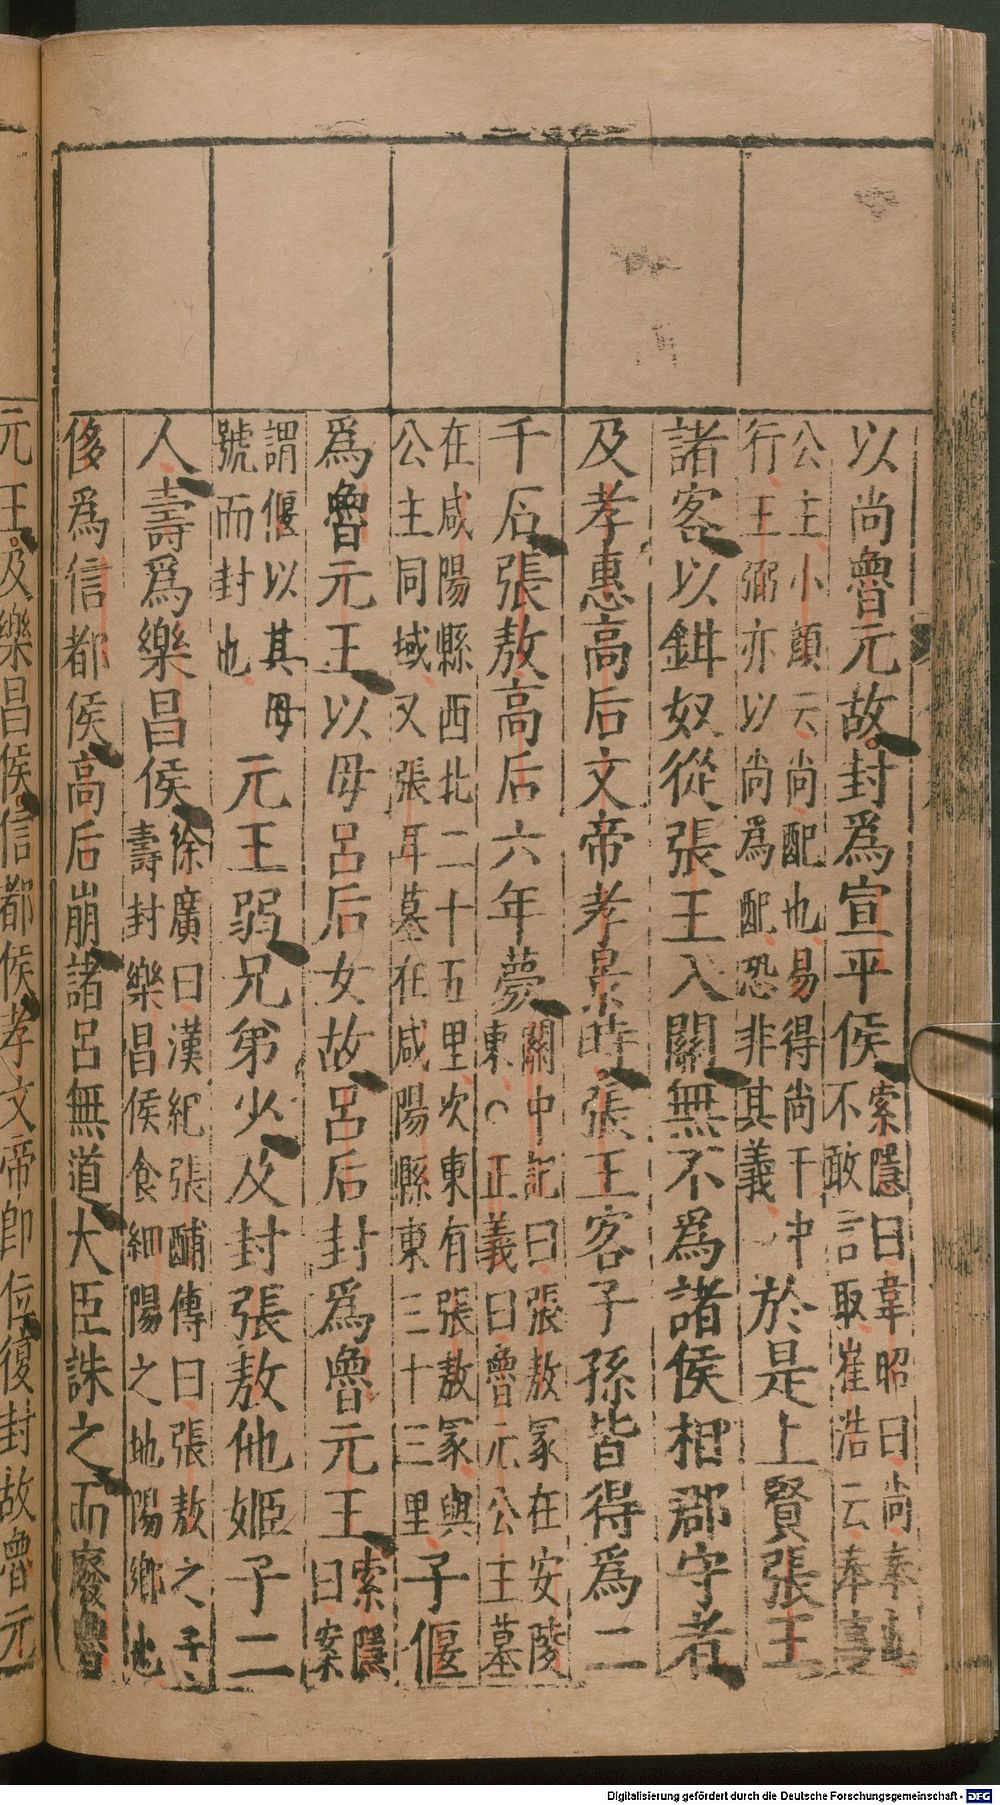 以尚魯元故封爲宣平侯索隱曰韋昭曰尚奉也
不敢言取崔浩云奉事
公主小顏云尚配也易得尚于中
行王弼亦以尚爲配恐非其義
於是上賢張王
諸客以鉗奴從張王入關無不爲諸侯相郡守者
及孝惠高后文帝孝景時張王客子孫皆得爲二
千石張敖高后六年薨關中記曰張敖冢在安陵
東○正義曰魯元公主墓
在咸陽縣西北二十五里次東有張敖冢與
公主同域又張耳墓在咸陽縣東三十三里
子偃
爲魯元王以母呂后女故呂后封爲魯元王索隱
曰案
謂偃以其母
號而封也
元王弱兄弟少及封張敖他姬子二
人壽爲樂昌侯徐廣曰漢紀張酺傳曰張敖之子
壽封樂昌侯食細陽之地陽鄉也
侈爲信都侯高后崩諸呂無道大臣誅之而廢魯
元王及樂昌侯信都侯孝文帝卽位復封故魯元
Digitalisierung gefördert durch die Deutsche Forschungsgemeinschaft - DFG